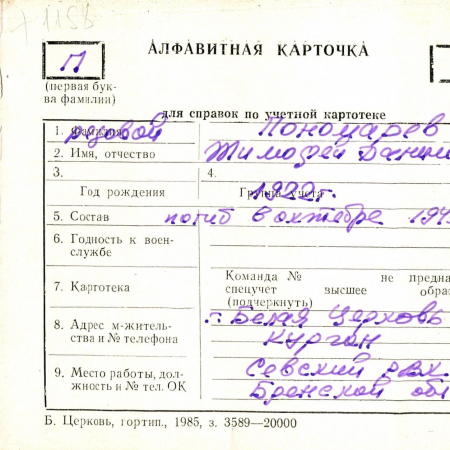 + 1156
П
АЛФАВИТНАЯ КАРТОЧКА
(первая бук-
ва фамилии)
для справок по учетной картотеке
1. Фамилия рядовой Пономарев
2. Имя, отчество Тимофей Данил
3.
4.
Год рождения 1922 г. Группа учета
5. Состав погиб в октябре 194
6. Годность к воен-
службе
7. Картотека
Команда № не предна
спецучет высшее обра
(подчеркнуть)
8. Адрес м-житель-
ства и № телефона
г. Белая Церковь
Курган
9. Место работы, дол-
жность и № тел. ОК
Севский рвк
Брянской обл
Б. Церковь, гортип., 1985, з. 3589—20000